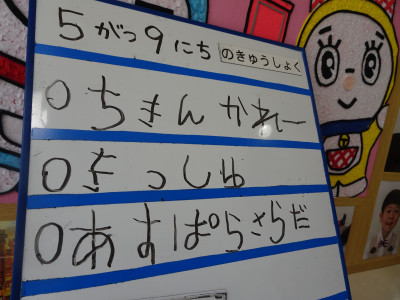 5がつ9にち のきゅうしょく
○ちきんかれー
○らっしゅ
○あすぱらさらだ